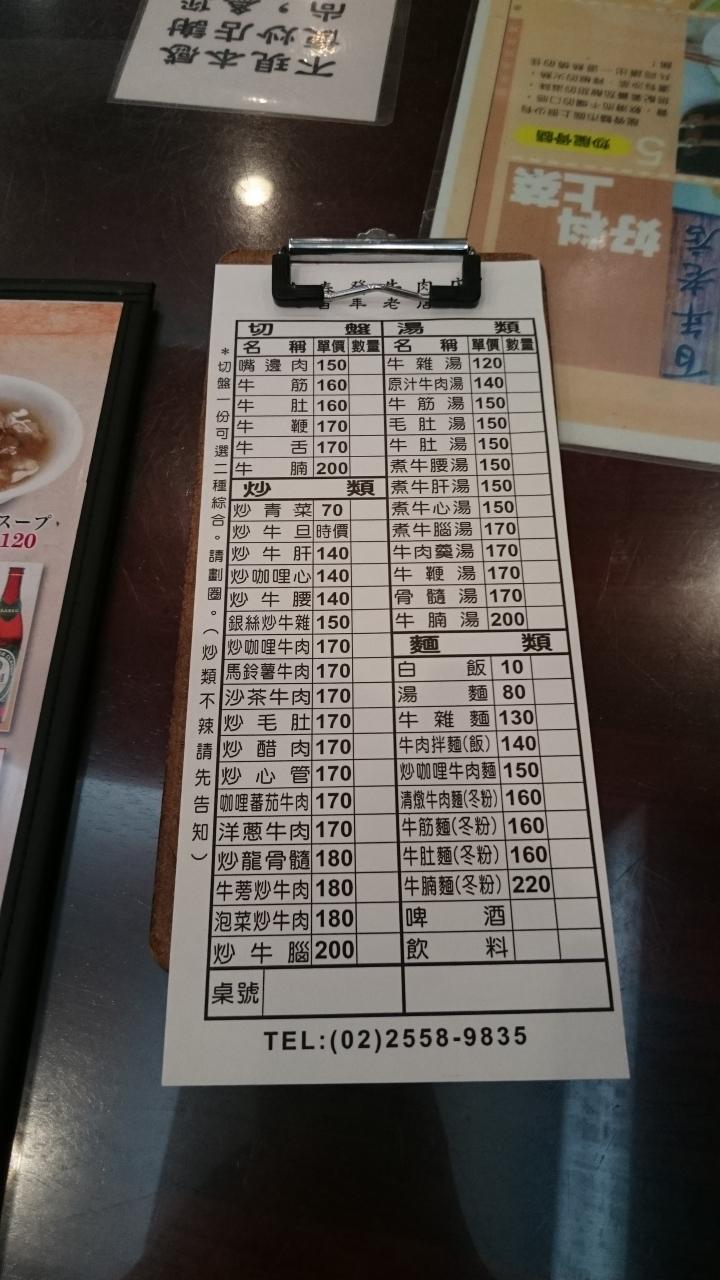 不現本感
炒店謝
好料
上菜
5
炒龍骨髓
百年老店
スープ
120
登牛肉店
百年老店
切盤
名稱 單價 數量
嘴邊肉 150
牛筋 160
牛肚 160
牛鞭 170
牛舌 170
牛腩 200
炒類
炒青菜 70
炒牛旦 時價
炒牛肝 140
炒咖哩心 140
炒牛腰 140
銀絲炒牛雜 150
炒咖哩牛肉 170
馬鈴薯牛肉 170
沙茶牛肉 170
炒毛肚 170
炒醋肉 170
炒心管 170
咖哩蕃茄牛肉 170
洋蔥牛肉 170
炒龍骨髓 180
牛蒡炒牛肉 180
泡菜炒牛肉 180
炒牛腦 200
湯類
名稱 單價 數量
牛雜湯 120
原汁牛肉湯 140
牛筋湯 150
毛肚湯 150
牛肚湯 150
煮牛腰湯 150
煮牛肝湯 150
煮牛心湯 150
煮牛腦湯 170
牛肉羹湯 170
牛鞭湯 170
骨髓湯 170
牛腩湯 200
麵類
白飯 10
湯麵 80
牛雜麵 130
牛肉拌麵(飯) 140
炒咖哩牛肉麵 150
清燉牛肉麵(冬粉) 160
牛筋麵(冬粉) 160
牛肚麵(冬粉) 160
牛腩麵(冬粉) 220
啤酒
飲料
桌號
*切盤一份可選二種綜合。請劃圈。(炒類不辣請先告知)
TEL:(02)2558-9835